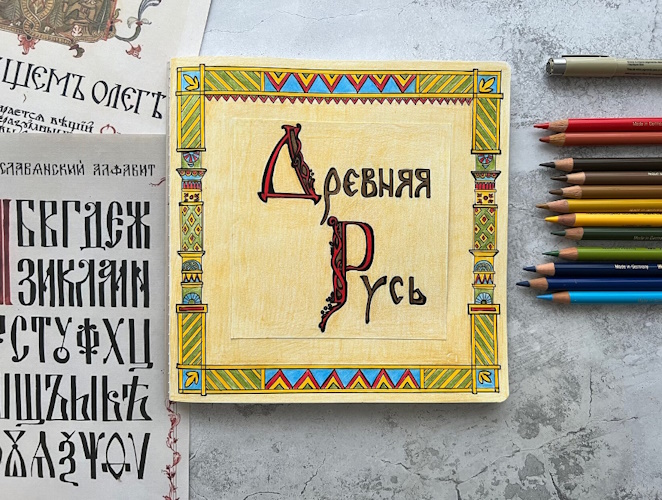 ЩЕМЪ ОЛЕГѢ
СЛАВЯНСКИЙ АЛФАВИТ
БВГДЕЖ
ЗИКЛМН
СТУФХЦ
ЩЪЫЬѢ
Древняя
Русь
Made in Germany
Made in Germany